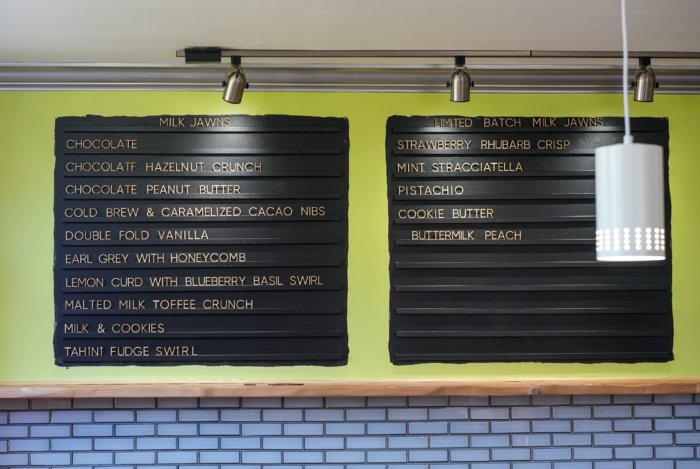 MILK JAWNS
CHOCOLATE
CHOCOLATF HAZELNUT CRUNCH
CHOCOLATE PEANUT BUTTER
COLD BREW & CARAMELIZED CACAO NIBS
DOUBLE FOLD VANILLA
EARL GREY WITH HONEYCOMB
LEMON CURD WITH BLUEBERRY BASIL SWIRL
MALTED MILK TOFFEE CRUNCH
MILK & COOKIES
TAHINI FUDGE SWIRL
LIMITED BATCH MILK JAWNS
STRAWBERRY RHUBARB CRISP
MINT STRACCIATELLA
PISTACHIO
COOKIE BUTTER
BUTTERMILK PEACH